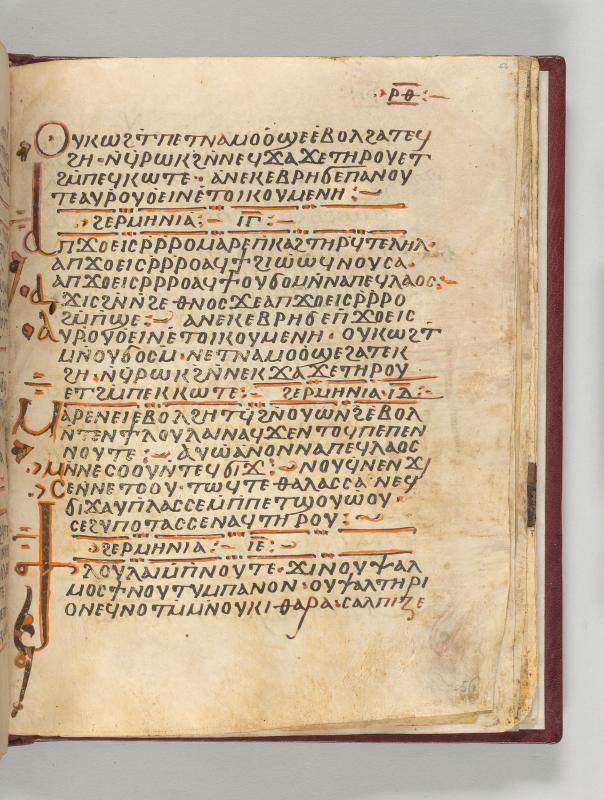 ⲣ̅ⲑ̅
ⲟⲩⲕⲱϩⲧⲡⲉⲧⲛⲁⲙⲟⲟϣⲉⲉⲃⲟⲗϩⲁⲧⲉϥ
ϩⲏ· ⲛϥⲣⲱⲕϩⲛⲛⲉϥϫⲁϫⲉⲧⲏⲣⲟⲩⲉⲧ
ϩⲙⲡⲉϥⲕⲱⲧⲉ· ⲁⲛⲉⲕⲉⲃⲣⲏϭⲉⲡⲁⲛⲟⲩ
ⲧⲉⲁⲩⲣⲟⲩⲟⲉⲓⲛⲉⲧⲟⲓⲕⲟⲩⲙⲉⲛⲏ :~
ϩⲉⲣⲙⲏⲛⲓⲁ :~ ⲓⲅ :~
ⲁⲡϫⲟⲉⲓⲥⲣⲣⲣⲟⲙⲁⲣⲉⲡⲕⲁϩⲧⲏⲣϥⲧⲉⲗⲏⲗ·
ⲁⲡϫⲟⲉⲓⲥⲣⲣⲣⲟⲁϥϯϩⲓⲱⲱϥⲛⲟⲩⲥⲁ·
ⲁⲡϫⲟⲉⲓⲥⲣⲣⲣⲟⲁϥϯⲟⲩϭⲟⲙⲛⲛⲁⲡⲉϥⲗⲁⲟⲥ:~
ⲁϫⲓⲥϩⲛⲛϩⲉⲑⲛⲟⲥϫⲉⲁⲡϫⲟⲉⲓⲥⲣⲣⲣⲟ
ϩⲙⲡϣⲉ :~ ⲁⲛⲉⲕⲉⲃⲣⲏϭⲉⲡϫⲟⲉⲓⲥ
ⲁⲩⲣⲟⲩⲟⲉⲓⲛⲉⲧⲟⲓⲕⲟⲩⲙⲉⲛⲏ· ⲟⲩⲕⲱϩⲧ
ⲙⲛⲟⲩϭⲟⲥⲙ· ⲛⲉⲧⲛⲁⲙⲟⲟϣⲉϩⲁⲧⲉⲕ
ϩⲏ· ⲛϥⲣⲱⲕϩⲛⲛⲉⲕϫⲁϫⲉⲧⲏⲣⲟⲩ
ⲉⲧϩⲙⲡⲉⲕⲕⲱⲧⲉ :~ ϩⲉⲣⲙⲏⲛⲓⲁ ⲓⲇ :~
ⲙⲁⲣⲉⲛⲉⲓⲉⲃⲟⲗϩⲏⲧϥϩⲛⲟⲩⲱⲛϩⲉⲃⲟⲗ
ⲛⲧⲉⲛⲯⲗⲟⲩⲗⲁⲓⲛⲁϥϫⲉⲛⲧⲟϥⲡⲉⲡⲉⲛ
ⲛⲟⲩⲧⲉ :~ ⲁⲩⲱⲁⲛⲟⲛⲛⲁⲡⲉϥⲗⲁⲟⲥ
ⲙⲛⲛⲉⲥⲟⲟⲩⲛⲧⲉϥϭⲓϫ :~ ⲛⲟⲩϥⲛⲉⲛϫⲓ
ⲥⲉⲛⲛⲉⲧϭⲟⲥⲩ· ⲧⲱϥⲧⲉⲑⲁⲗⲁⲥⲥⲁ· ⲛⲉϥ
ϭⲓϫⲁⲩⲡⲗⲁⲥⲥⲉⲙⲡⲡⲉⲧϣⲟⲩⲱⲟⲩ·
ⲥⲉϩⲩⲡⲟⲧⲁⲥⲥⲉⲛⲁϥⲧⲏⲣⲟⲩ :~
ϩⲉⲣⲙⲏⲛⲓⲁ :~ ⲓⲉ :~
ⲯⲗⲟⲩⲗⲁⲓⲙⲡⲛⲟⲩⲧⲉ· ϫⲓⲛⲟⲩⲯⲁⲗ
ⲙⲟⲥϯⲛⲟⲩⲧⲩⲙⲡⲁⲛⲟⲛ· ⲟⲩⲯⲁⲗⲧⲏⲣⲓ
ⲟⲛⲉϥⲛⲟⲧⲙⲙⲛⲟⲩⲕⲓⲑⲁⲣⲁ· ⲥⲁⲗⲡⲓⲍⲉ